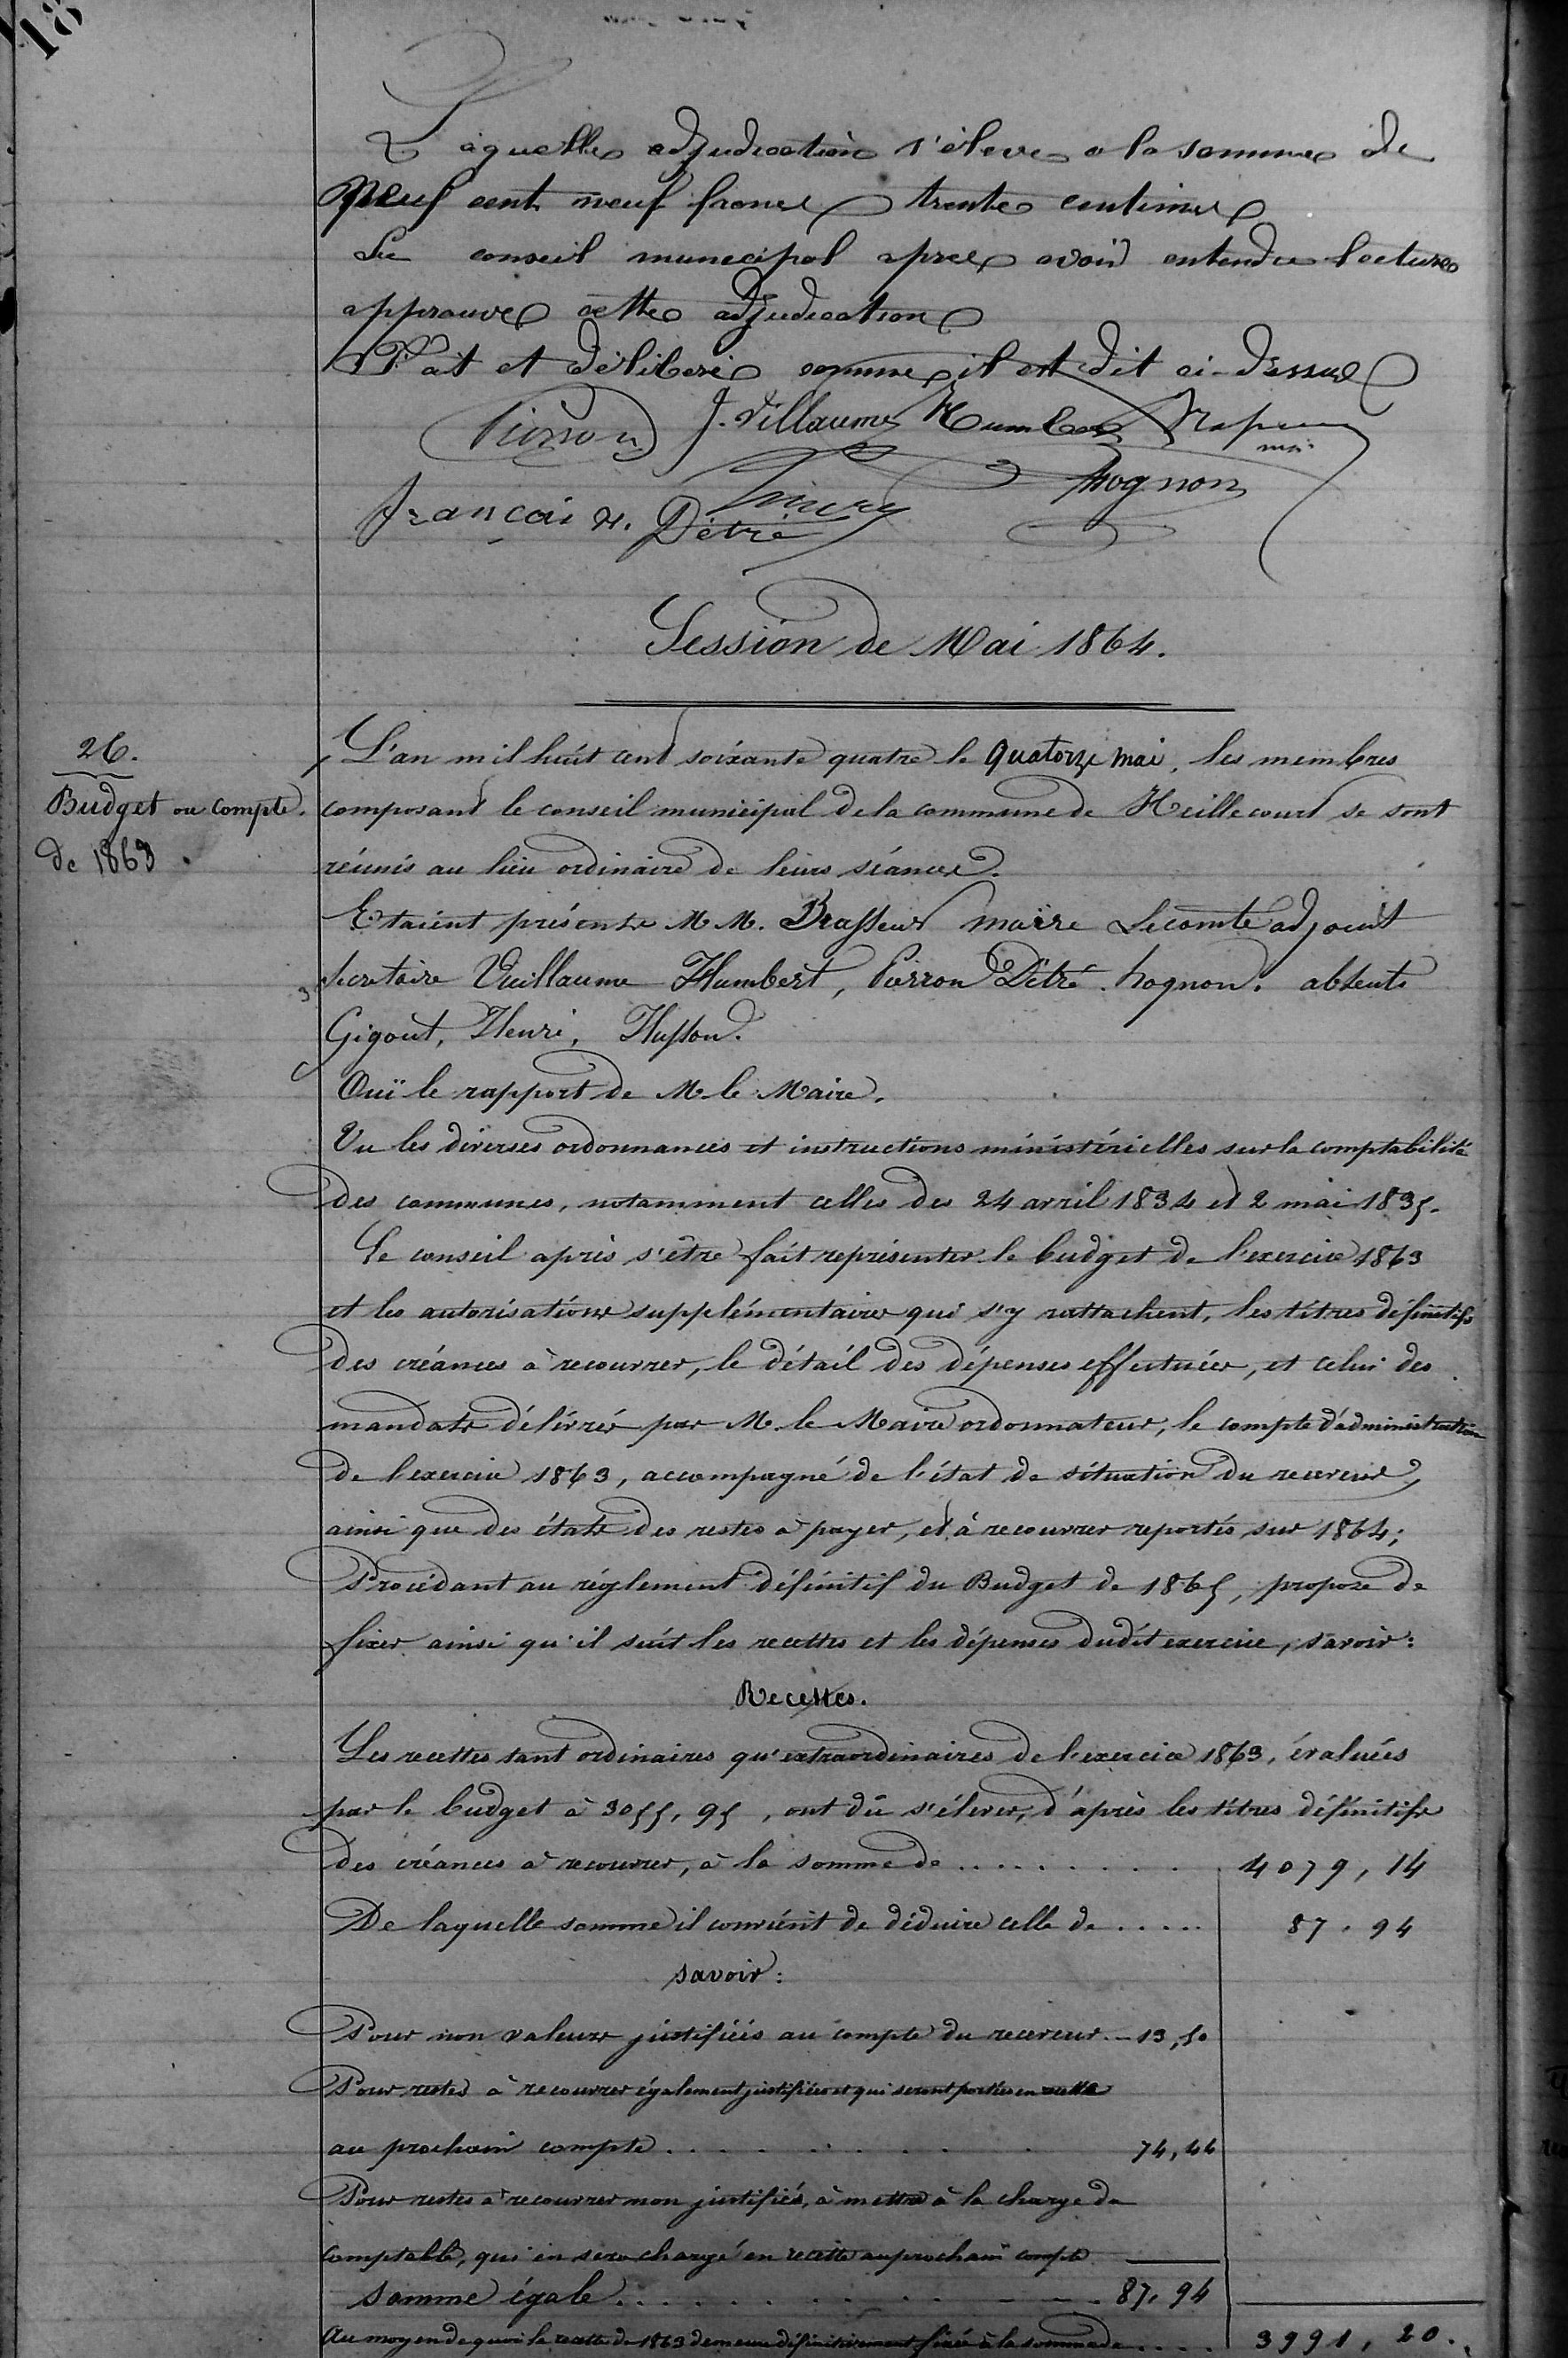 18
Laquelle adjudication s'élève a la somme de
Neuf cent neuf francs trente centimes
Le conseil municipal apres avoir entendu lecture
approuve cette adjudication
Fait et délibéré comme il est dit ci-dessus
Pierron J. Villaume Humbert
François H. Détré hognon
Session de Mai 1864.
26.
Budget ou compte.
de 1863
L'an mil huit cent soixante quatre le quatorze mai, les membres
composant le conseil municipal de la commune de Heillecourt se sont
réunis au lieu ordinaire de leurs séances.
Etaient présents M M. Brasseur maire Lecomte adjoint
secretaire Vuillaume Humbert, Pierron Détré. hognon. absents
Gigout, Henri, Husson.
Ouï le rapport de M le Maire.
Vu les diverses ordonnances et instructions ministérielles sur la comptabilité
des communes, notamment celles des 24 avril 1834 et 2 mai 1835.
Le conseil après s'être fait représenter le budget de l'exercice 1863
et les autorisations supplémentaires qui s'y rattachent, les titres définitifs
des créances à recouvrer, le détail des dépenses effectuées, et celui des
mandats délivrés par M. le Maire ordonnateur, le compte d'administration
de l'exercice 1863, accompagné de l'état de situation du receveur,
ainsi que des états des restes à payer, et à recouvrer reportés sur 1864;
Procédant au réglement définitif du Budget de 1865, propose de
fixer ainsi qu'il suit les recettes et les dépenses dudit exercice, savoir:
Recettes.
Les recettes tant ordinaires qu'extraordinaires de l'exercice 1863, évaluées
par le budget à 3055,95, ont dû s'élever, d'après les titres définitifs
des créances à recouvrer, à la somme de ......... 4079,14
De laquelle somme il convient de déduire celle de ..... 87.94
savoir:
Pour non valeurs justifiées au compte du receveur.- 13,50
Pour restes à recouvrer également justifiées et qui seront portées en recette
au prochain compte ......... 74,44
Pour restes à recouvrer non justifiés, à mettre à la charge du
comptable, qui en sera chargé en recette au prochain compte
Somme égale ......... 87.94
Au moyen de quoi la recette de 1863 demeure définitivement fixée à la somme de .... 3991,20.